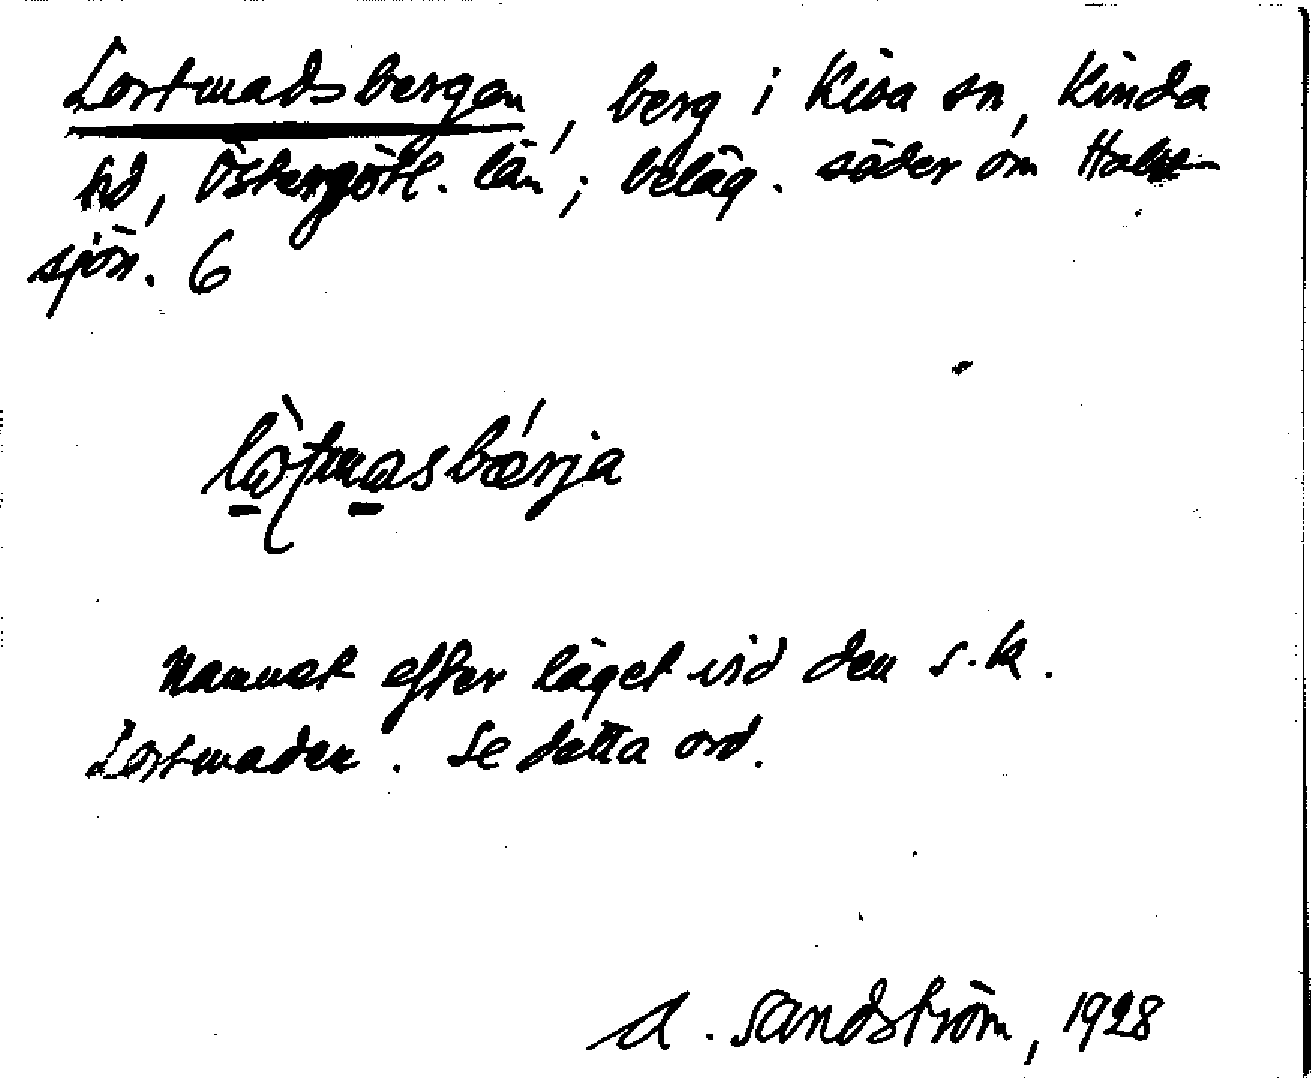 Lortmadsbergen, berg i Kisa sn, Kinda
hd, Östergötl. län; beläg. söder om
sjön. 6
Namnet efter läget vid den s.k.
Lortmaden. Se detta ord.
A. Sandström, 1928